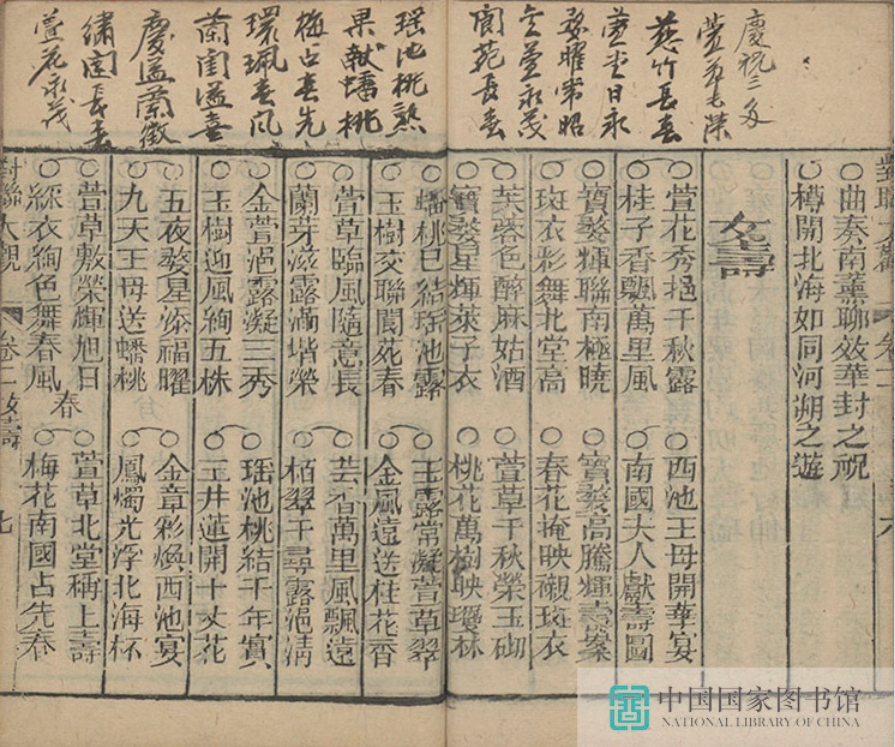 慶祝三多
萱
慈竹長春
萱堂日永
婺曜常昭
金萱永茂
閬苑長春
瑶池桃熟
果献蟠桃
梅占春先
環珮春风
蘭閨溢喜
慶溢蘭徵
繡閣長春
萱花永茂
對聯大觀
卷二
六
曲奏南薰聊效華封之祝
樽開北海如同河朔之遊
女壽
萱花秀挹千秋露
桂子香飄萬里風
寶婺輝聯南極曉
斑衣彩舞北堂高
芙蓉色醉麻姑酒
寶婺星輝萊子衣
西池王母開華宴
南國夫人獻壽圖
寶婺高騰輝壽案
春花掩映襯斑衣
萱草千秋榮玉砌
桃花萬樹映瓊林
蟠桃已結瑶池露
玉樹交聯閬苑春
萱草臨風隨意長
蘭芽滋露滿堦榮
金萱浥露凝三秀
玉樹迎風絢五株
五夜婺星添福曜
九天王母送蟠桃
萱草敷榮輝旭日
綵衣絢色舞春風
玉露常凝萱草翠
金風遠送桂花香
芸香萬里風飄遠
栢翠千尋露浥清
瑶池桃結千年實
玉井蓮開十丈花
金章彩煥西池宴
鳳燭光浮北海杯
萱草北堂稱上壽
梅花南國占先春
春
對聯大觀
卷二
女壽
七
中国国家图书馆
NATIONAL LIBRARY OF CHINA